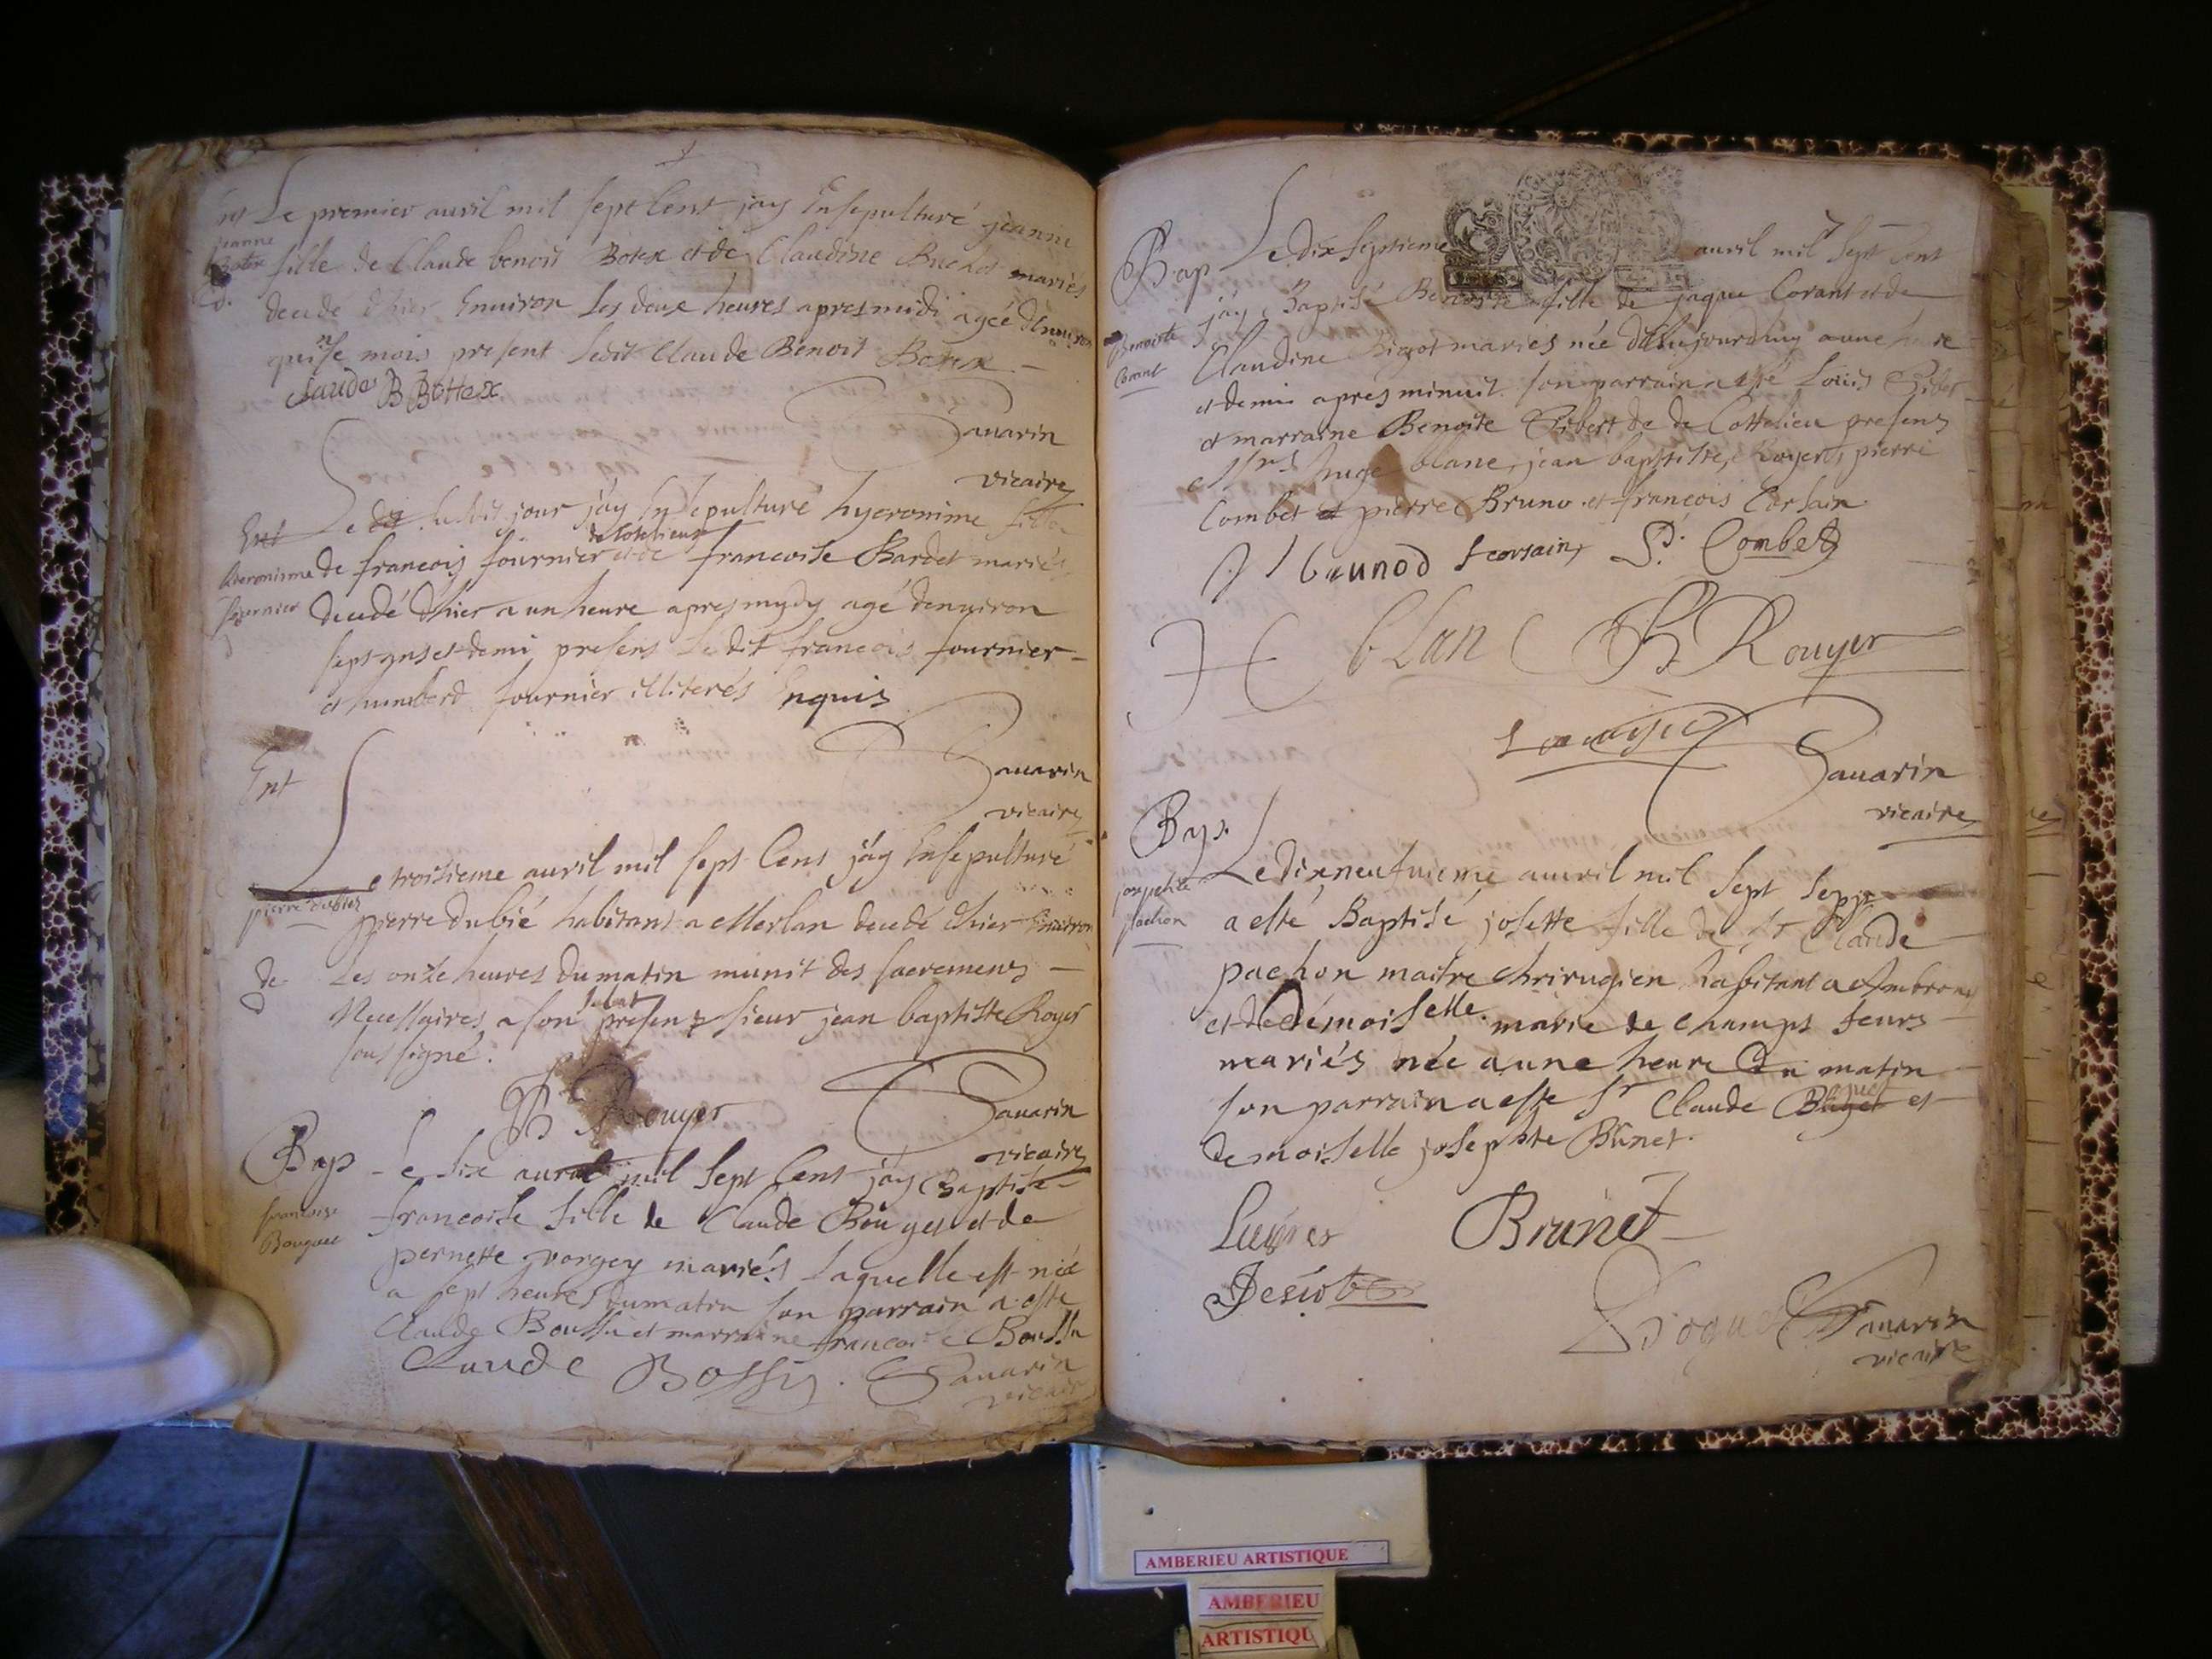 Ent Le premier auril mil sept Cent jay Ensepulturé jeanne
jeanne
Botex fille de Claude benoit Botex et de Claudine Buchot mariés
decede d'hier Enuiron les deux heures apres midi agée d'Enuiron
quinse mois present ledit Claude Benoit Botex
Claude B Bottex
Sauarin
vicaire
Ent Ledit jour j'ay Ensepulturé hyeronime
hieronisme de francois fournier et de francoise Bardet mariés
fournier decedé d'hier a un heure apres mydy agé denuiron
sept ans et demi presens ledit francois fournier
et humberd fournier illiterés Enquis
Sauarin
vicaire
Ent
Le troisieme auril mil sept Cens j'ay Ensepulturé
pierre dubiez
pierre dubié habitant a Merlan decedé d'hier Enuiron
de les onze heures du matin munit des sacremens
Necessaires a son salut presens sieur jean baptiste Royer
sous signé.
JB Rouyer
Sauarin
vicaire
Bap Le six auril mil sept Cent j'ay Baptisé
francoise francoise fille de Claude Bouget et de
Bouguet
pernette vorgey mariés laquelle est née
a sept heures du matin son parrain a esté
Claude Boussu et marraine francoise Boussu
Claude Bossy. Sauarin
vicaire
Bap Le dix septieme auril mil sept Cent
jay Baptisé Benoite fille de jaque Corant et de
Benoiste
Corant Claudine Bigot mariés née d'aujourdhuy a une heure
et demie apres minuit. son parrain a esté Louis Gibert
et marraine Benoite Gibert de Cottelieu presens
Srs huge blanc, jean baptiste Royer, pierre
Combet et pierre Bruno et francois Corsain
brunod f corsain P. Combet
H blan JB Rouyer
Sauarin
vicaire
Bap.
Le dixneufuieme auuril mil sept
josephte
pachon a esté Baptisé josette fille de Sr Claude
pachon maitre chirurgien habitant a Ambronay
et de demoiselle marie de champs feurs
mariés née a une heure du matin
son parrain a este Sr Claude et
demoiselle josephte Brunet.
Brunet
Sauarin
vicaire
AMBERIEU ARTISTIQUE
AMBERIEU
ARTISTIQU